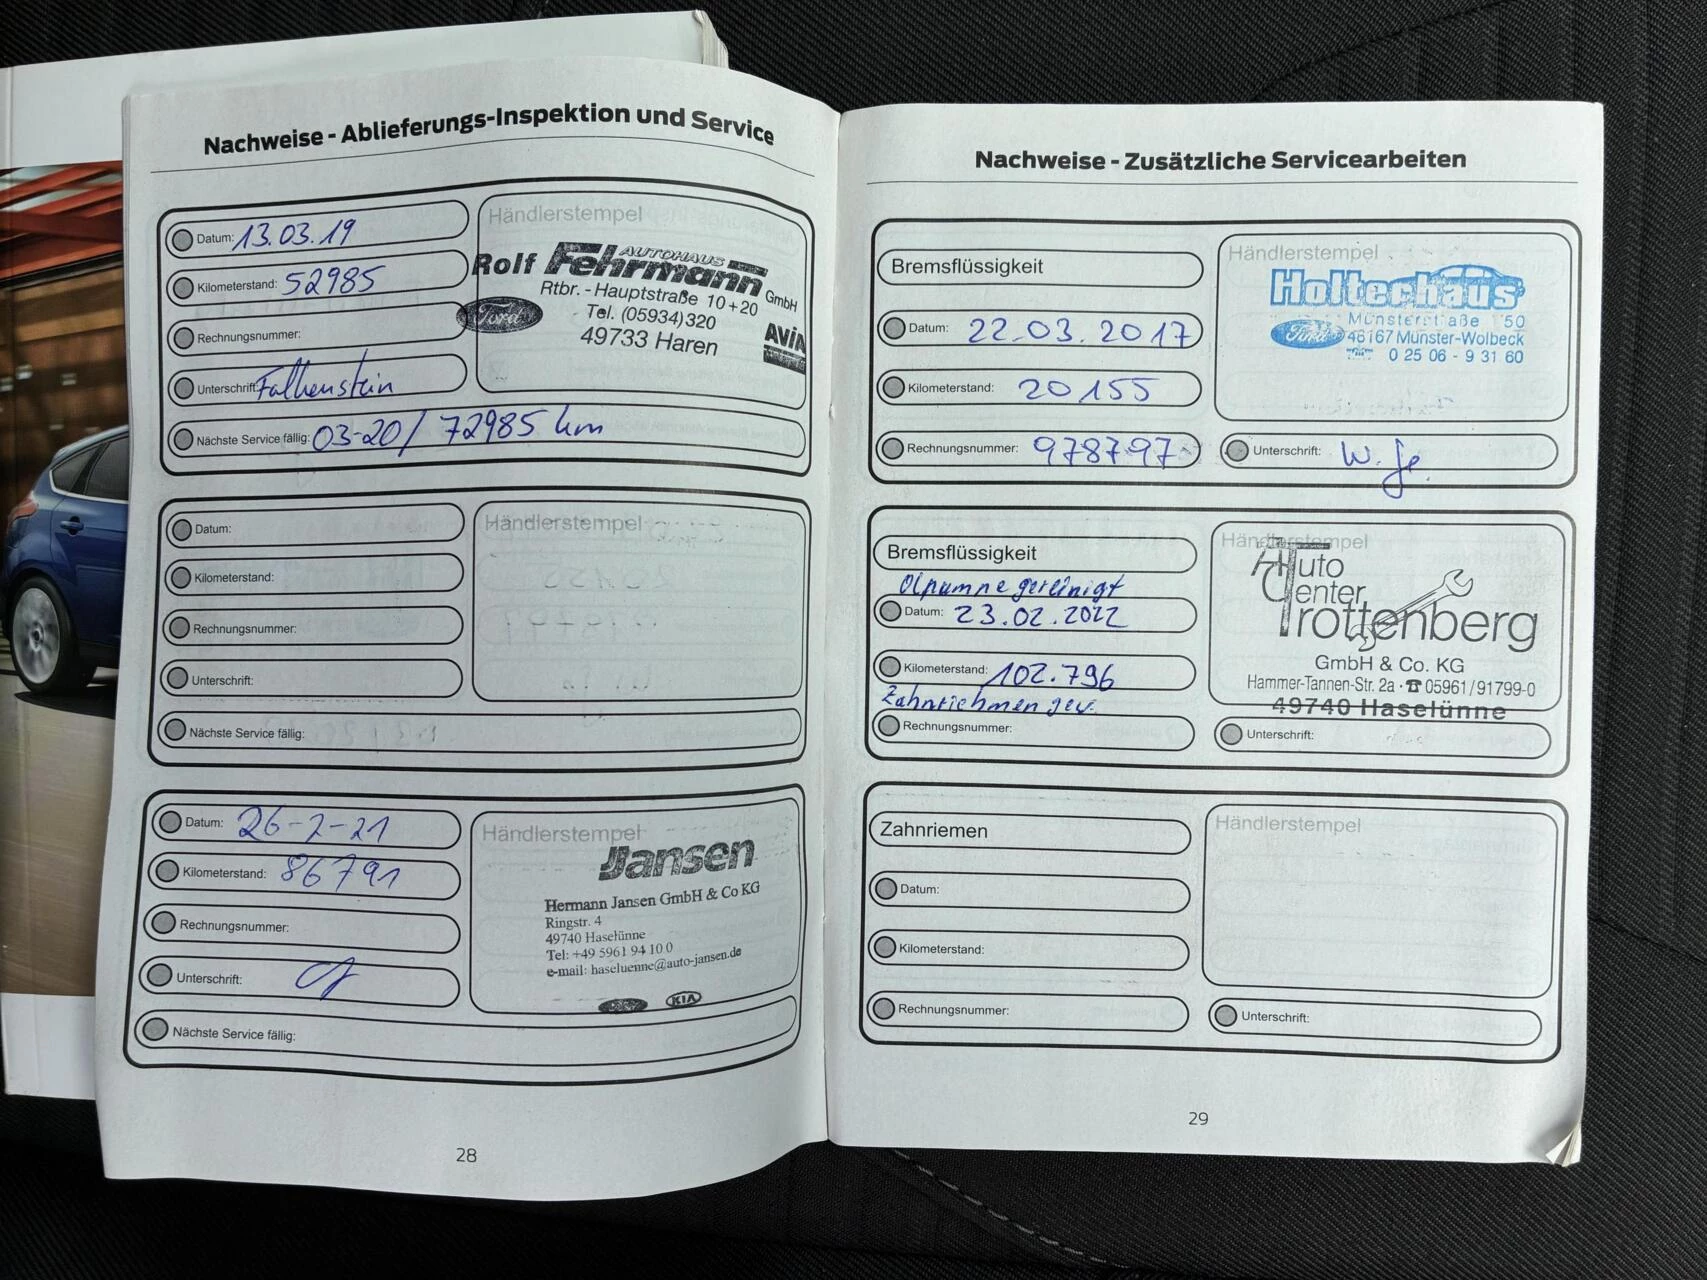 Nachweise - Ablieferungs-Inspektion und Service
Datum: 13.03.19
Kilometerstand: 52985
Rechnungsnummer:
Unterschrift: Falkenstein
Nächste Service fällig: 03-20/ 72985 km
Händlerstempel
AUTOHAUS
Rolf Fehrmann GmbH
Rtbr. - Hauptstraße 10+20
Ford
Tel. (05934)320
49733 Haren
AVIA
Datum:
Kilometerstand:
Rechnungsnummer:
Unterschrift:
Nächste Service fällig:
Händlerstempel
Datum: 26-2-21
Kilometerstand: 86791
Rechnungsnummer:
Unterschrift:
Nächste Service fällig:
Händlerstempel
Jansen
Hermann Jansen GmbH & Co KG
Ringstr. 4
49740 Haselünne
Tel: +49 5961 94 10 0
e-mail: haseluenne@auto-jansen.de
KIA
28
Nachweise - Zusätzliche Servicearbeiten
Bremsflüssigkeit
Datum: 22.03.2017
Kilometerstand: 20155
Rechnungsnummer: 978797
Händlerstempel
Holterhaus
Münsterstraße 50
Ford
48167 Münster-Wolbeck
0 25 06 - 9 31 60
Unterschrift:
Bremsflüssigkeit
Ölpumpe gereinigt
Datum: 23.02.2022
Kilometerstand: 102.796
Zahnriehmen gew.
Rechnungsnummer:
Händlerstempel
Auto
Center
Trottenberg
GmbH & Co. KG
Hammer-Tannen-Str. 2a · ☎ 05961/91799-0
49740 Haselünne
Unterschrift:
Zahnriemen
Datum:
Kilometerstand:
Rechnungsnummer:
Händlerstempel
Unterschrift:
29